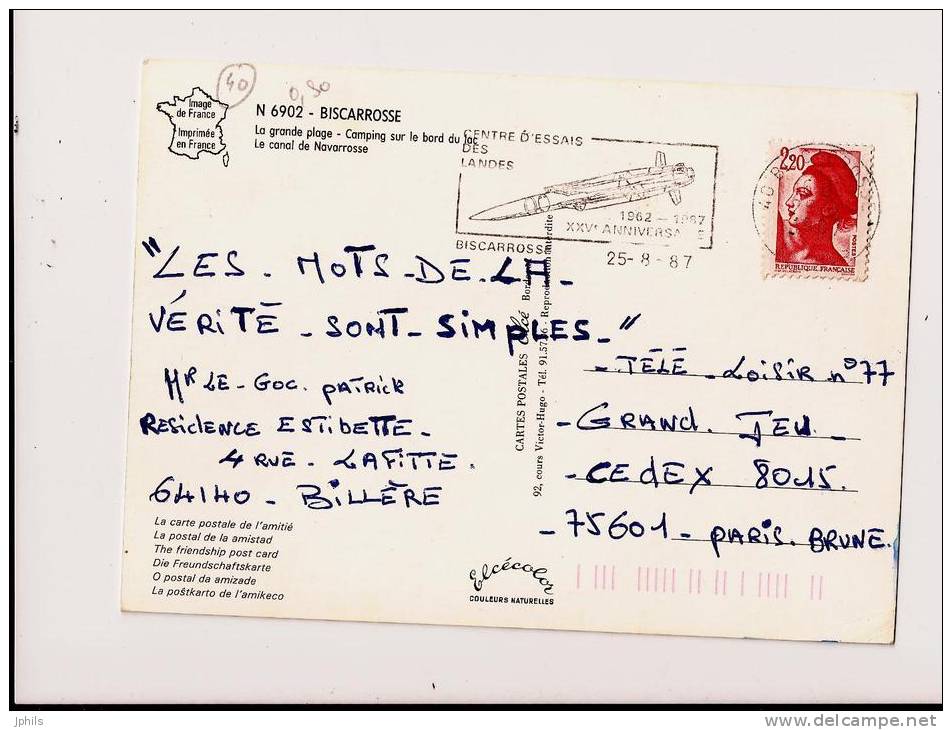 40
0,90
Image
de France
Imprimée
en France
N 6902 - BISCARROSSE
La grande plage - Camping sur le bord du lac
Le canal de Navarrosse
CENTRE D'ESSAIS
DES
LANDES
1962 - 1987
XXVe ANNIVERSAIRE
BISCARROSSE
25-8-87
40 B
2,20
POSTES
REPUBLIQUE FRANÇAISE
"LES - MOTS - DE - LA -
VÉRITÉ - SONT - SIMPLES - "
Mr LE - GOC. PATRICK
RESIDENCE ESTIBETTE -
4 RUE - LAFITTE.
64140 - BILLÈRE
- TÉLÉ - LOISIR n° 77
- GRAND. JEU -
- CEDEX 8015.
- 75601 - PARIS. BRUNE.
CARTES POSTALES Elcé
92, cours Victor-Hugo - Tél. 91.57.36 - Reproduction interdite
La carte postale de l'amitié
La postal de la amistad
The friendship post card
Die Freundschaftskarte
O postal da amizade
La poŝtkarto de l'amikeco
Elcécolor
COULEURS NATURELLES
jphils
www.delcampe.net